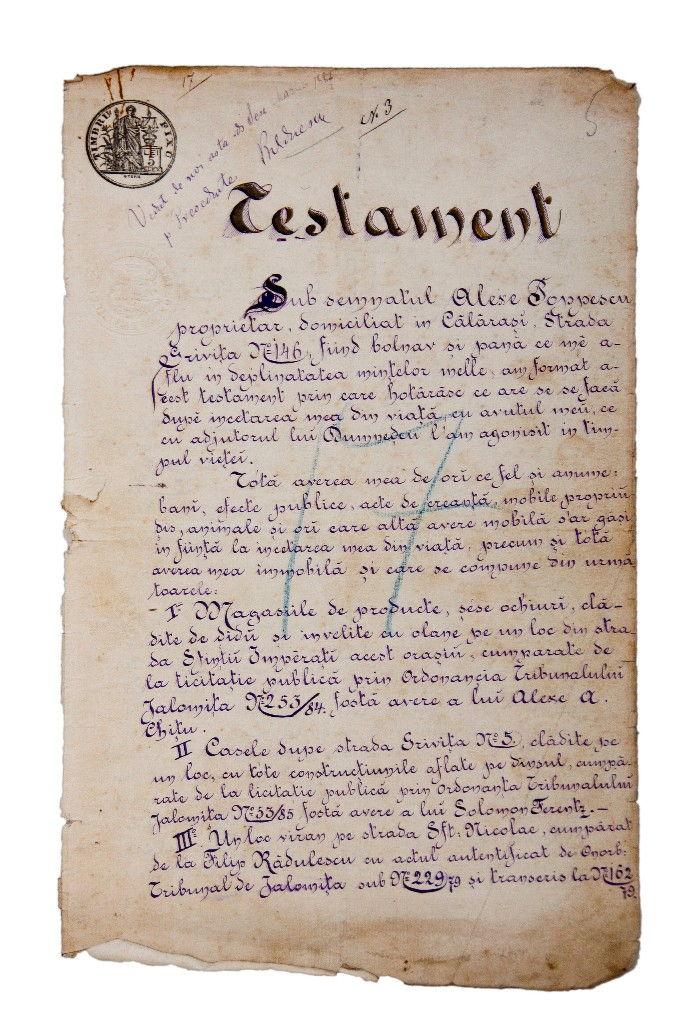 17
TIMBRU FIXU
Vedut de noi asta di
Președinte
No 3
5
Testament
Sub semnatul Alexe Poppescu
proprietar, domiciliat in Călărași, Strada
Grivița No 146, fiind bolnav și până ce mĕ a-
flu in deplinatatea mințelor melle, am format a-
cest testament prin care hotărăsc ce are se se facă
dupĕ incetarea mea din viață cu avutul meŭ, ce
cu adjutorul lui Dumnedeu l'am agonisit in tim-
pul viețeĭ.
Totă averea mea de ori ce fel și anume:
bani, efecte publice, acte de creanță, mobile propriu
dis, animale și ori care altă avere mobilă s'ar găsi
in ființă la incetarea mea din viață, precum și totă
averea mea immobilă și care se compune din urmă
toarele:
Iu Magasiile de producte, șése ochiuri, clă-
dite de didŭ si invelite cu olane pe un loc din stra-
da Sfințiĭ Impĕrați acest orașiŭ, cumparate de
la ticitație publică prin Ordonancia Tribunalului
Jalomița No 253/84. fostă avere a lui Alexe A.
Chițu.
II Casele dupe strada Grivița No 5., clădite pe
un loc, cu tóte constrocțiunile aflate pe dînsul, cumpă-
rate de la licitație publică prin Ordonanța Tribunalului
Jalomița No 53/85 fostă avere a lui Solomon Ferentz.-
III Un loc viran pe strada Sft: Nicolae, cumpărat
de la Filip Rădulescu cu actul autentificat de Onorb:
Tribunal de Jalomița sub No 229/79 și transcris la No 162
79.
17